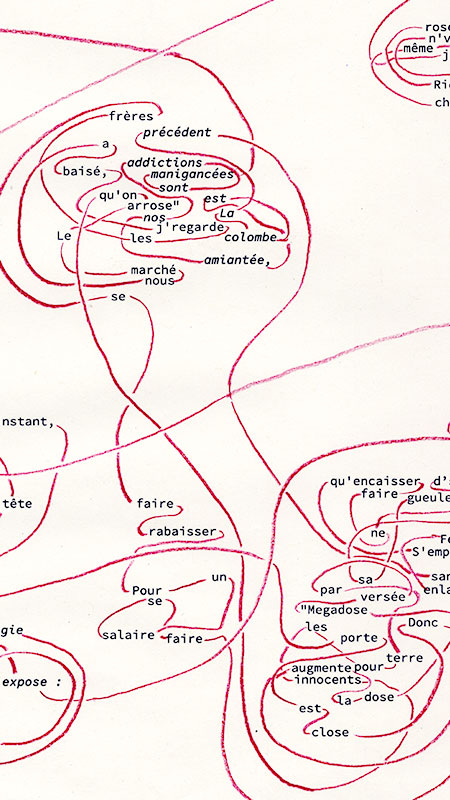 même
frères
précédent
a
addictions
baisé,
manigancées
sont
qu'on
est
arrose"
La
nos
j'regarde
Le
les
colombe
amiantée,
marché
nous
se
tête
qu'encaisser
faire
gueule
faire
rabaisser
ne
sa
un
Pour
par
versée
se
"Megadose
les
Donc
salaire
faire
porte
terre
augmente
pour
expose :
innocents
la
dose
est
close